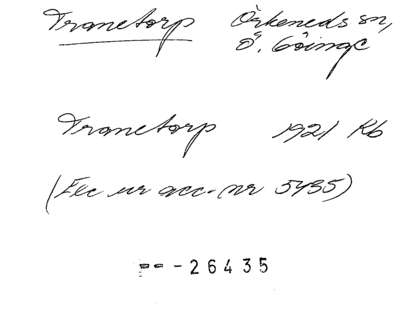 Tranetorp Örkeneds sn,
Ö. Göinge
Tranetorp 1921 Kb
(Exc ur acc. nr 5435)
-- -26435